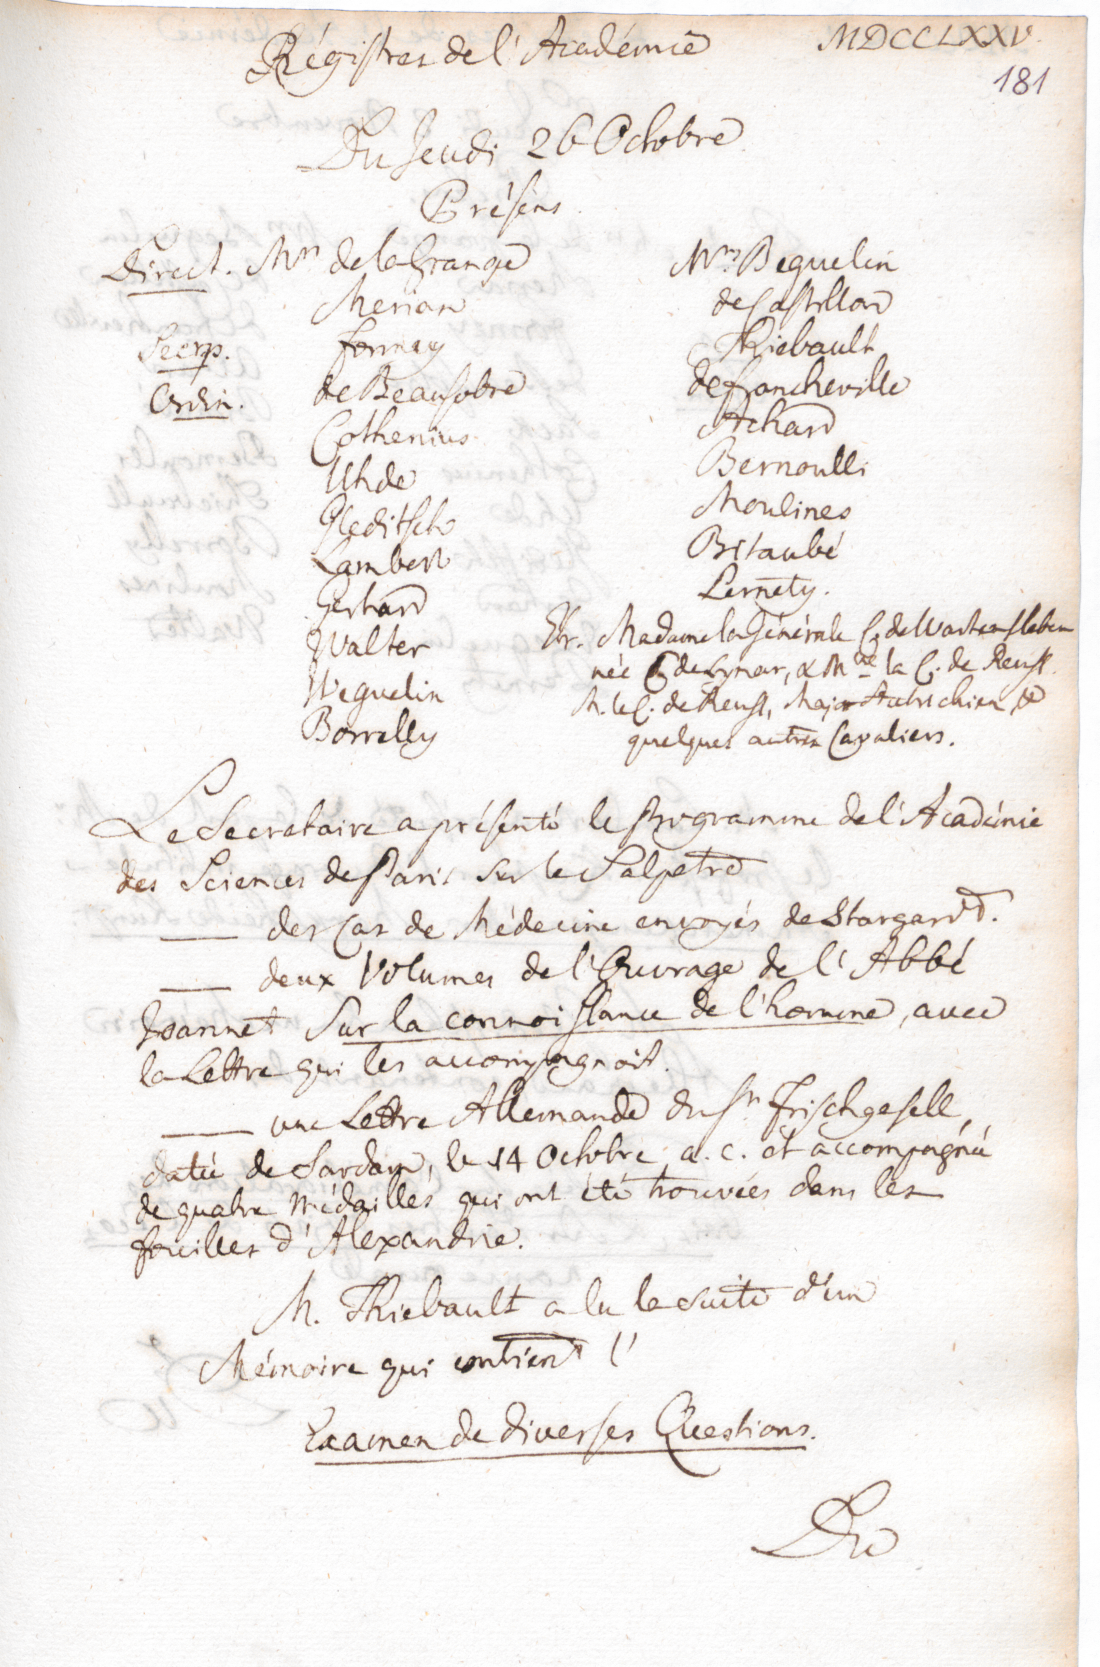 Régistres de l'Académie
MDCCLXXV.
181
Du Jeudi 26 Octobre
Présens
Direct. Mrs de la Grange
Merian
Secrp. Formey
Ordin. de Beausobre
Cothenius
Uhde
Gleditsch
Lambert
Gerhard
Walter
Weguelin
Borrelly
Mrs Beguelin
de Castillon
Thiebault
de Francheville
Achard
Bernoulli
Moulines
Bitaubé
Pernety.
Etr. Madame la Générale C. de Wartensleben
née C. de Lynar, & Me la C. de Reuss.
M. le C. de Reuss, Major Autrichien, &
quelques autres Cavaliers.
Le Secretaire a présenté le Programme de l'Académie
des Sciences de Paris sur le Salpetre
— des Cas de Médecine envoyés de Stargardt.
— deux Volumes de l'Ouvrage de l'Abbé
Joannet Sur la connoissance de l'homme, avec
la Lettre qui les accompagnoit.
— une Lettre Allemande du Sr Frischgesell,
datée de Sardam, le 14 Octobre a. c. et accompagnée
de quatre Médailles qui ont été trouvées dans les
fouilles d'Alexandrie.
M. Thiebault a lu la suite d'un
Mémoire qui contient l'
Examen de diverses Questions.
Du